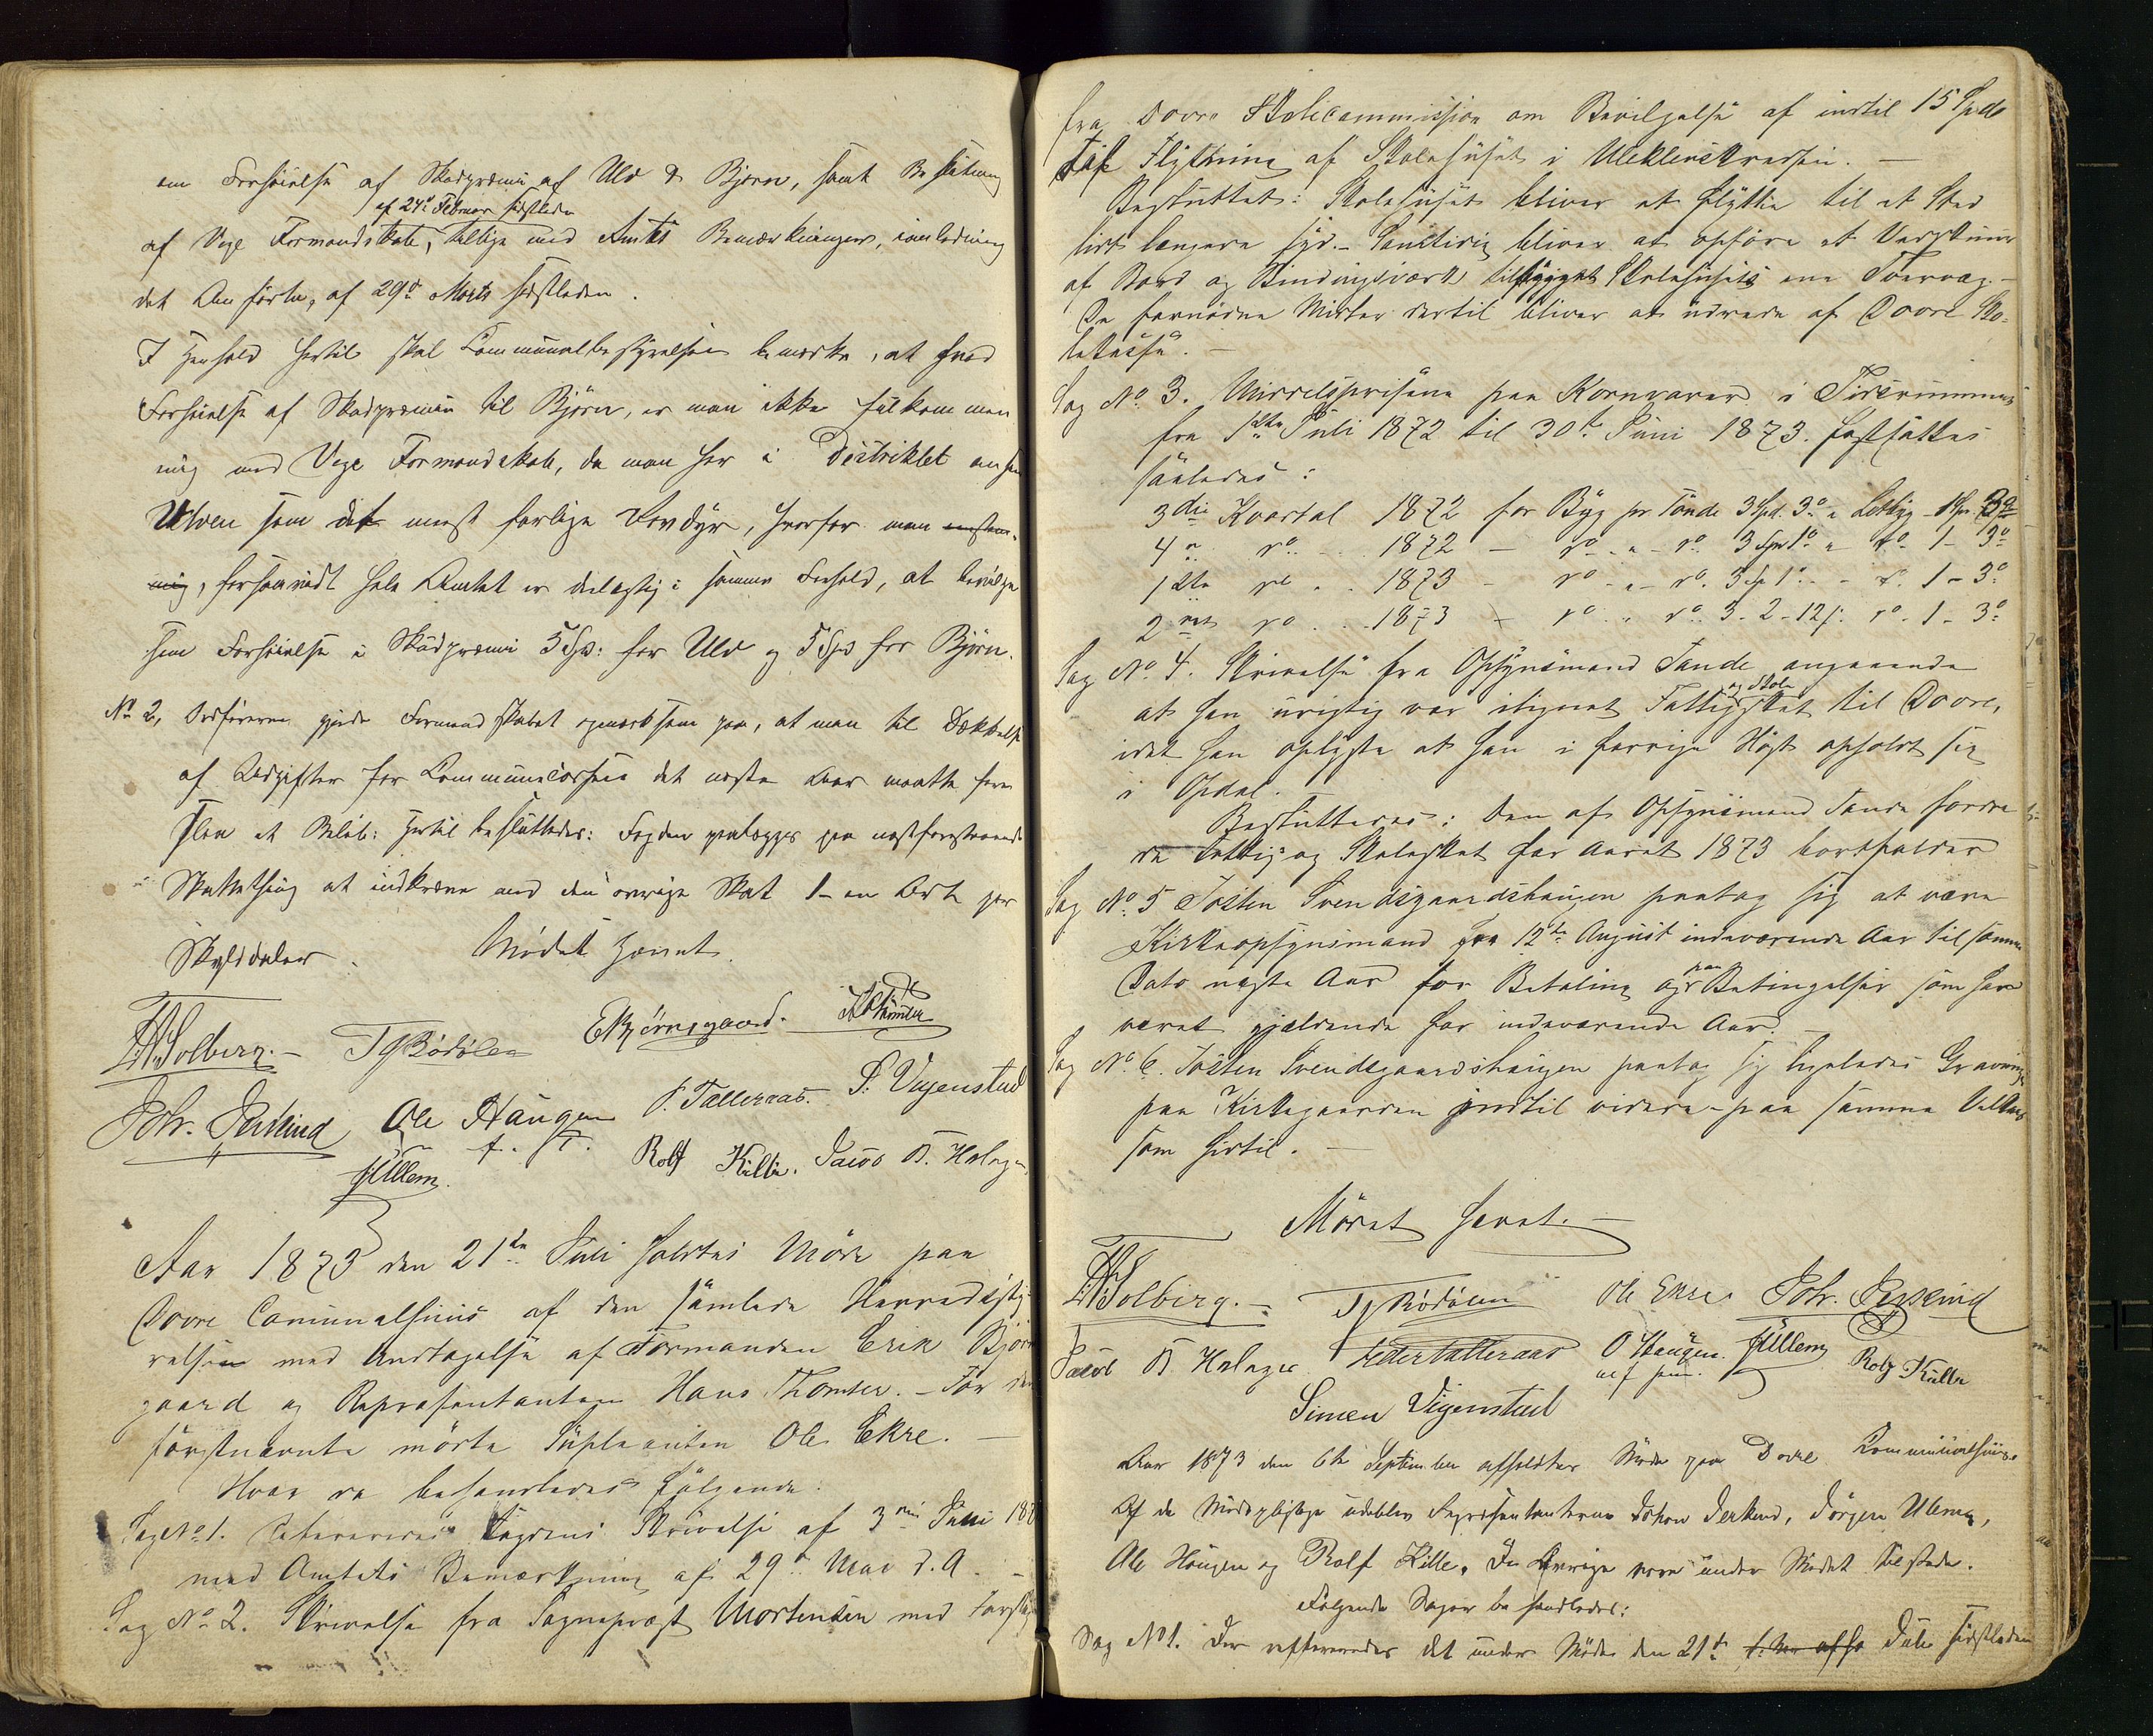 om Forhøielse af Skudpræmie af Ulv & Bjørn, samt Beslutning
af 24de Februar sidstleden
af Vage Formandskab, tillige med Amtets Bemærkninger, i anledning
det Anførte, af 29de Marts sidstleden.
I Henhold hertil skal Communalbestyrelsen bemærke, at hvad
Forhøielse af Skudpræmien til Bjørn, er man ikke fuldkommen
enig med Vage Formandskab, da man her i Districktet anser
Ulven som det meest farlige Rovdyr, hvorfor man
forsaavidt hele Amtet er deelagtig i samme Forhold, at bevilge
som Forhøielse i Skudpræmie 5 Spd: for Ulv og 5 Spd for Bjørn.
No 2, Ordføreren gjorde Formandskabet opmærksom paa, at man til Dækkelse
af Udgifter for Communecassen det næste Aar maatte fore
slaa et Beløb: Hertil besluttedes: Fogden paalægges paa næstforestaaende
Skattething at indkræve med den øvrige Skat 1 - en Ort per
Skylddaler. Mødet hævet.
H Solberg. T G Bødølen E Bjørnsgaard. H Thomter
Joh. Jerkind Ole Haugen P. Tallerraas. S. Vigenstad
f. T. Rolf Kille. Jacob B. Halager
J Ullem.
Aar 1873 den 21de Juli holdtes Møde paa
Dovre Comunalhuus af den samlede Herredsty-
relsen med Undtagelse af Formanden Erik Bjørns
gaard og Repræsentanten Hans Thomter. - For den
førstnævnte mødte Supleanten Ole Ekre. -
Hvor da behandledes følgende:
Sag No 1. Refereredes Fogdens Skrivelse af 3die Juni 187
med Amtets Bemærkning af 29de Mai d. A. -
Sag No 2. Skrivelse fra Sognepræst Mortensen med Forslag
fra Dovre Skolecommission om Bevilgelse af indtil 15 Spd
til Flytning af Skolehuset i Uleklevskredsen. -
Besluttet: Skolehuset bliver at flytte til et Sted
lidt længere syd. - Samtidig bliver at opføre et Vedskuur
af Bord og Bindingsværk tilbygget Skolehusets ene Tvervæg. -
De fornødne Midler dertil bliver at udrede af Dovre Sko-
lekasse. -
Sag No 3. Middelspriserne paa Kornvarer i Tidsrummet
fra 1ste Juli 1872 til 30te Juni 1873. fastsattes
saaledes:
3die Kvartal 1872 for Byg pr Tønde 3 Spd. 3o " Letbyg 1 Spd 3o
4 " do 1872 - do " do 3 Spd 1o " do 1 - 3o
1ste do " 1873 - do " do 3 Sp 1o - do 1 - 3o
2det do 1873 - do " do 3 - 2 - 12 s: do 1 - 3o
Sag No 4. Skrivelse fra Opsynsmand Tande angaaende
og Skole
at han urigtig var ilignet Fattigskat til Dovre,
idet han oplyste at han i forrige Høst opholdt sig
i Opdal.
Besluttedes: Den af Opsynsmand Tande fordre
de Fattig og Skoleskat for Aaret 1873 bortfalder
Sag No 5 Josten Svendsgaardshaugen paatog sig at være
Kirkeopsynsmand fra 12te August indeværende Aar til samme
paa
Dato næste Aar for Betaling og Betingelser som har
været gjældende for indeværende Aar. -
Sag No 6. Josten Svendsgaardshaugen paatog sig ligeledes Gravningen
paa Kirkegaarden indtil videre - paa samme Vilkaar
som hidtil. -
Mødet hævet. -
H Solberg. - T G Bødølen Ole Ekre Joh. Jerkind
Jacob B. Halager Peder Talleraas O Haugen. J Ullem Rolf Kille
m f pen.
Simen Vigenstad
Aar 1873 den 6te September afholdtes Møde paa Dovre Kommunalhuus.
Af de Mødepligtige udeblev Repræsentanterne Johan Jerkind, Jørgen Ullem,
Ole Haugen og Rolf Kille. De Øvrige vare under Mødet tilstede.
Følgende Sager behandledes:
Sag No 1. Der reffereredes det under Møde den 21de Juli sidstleden